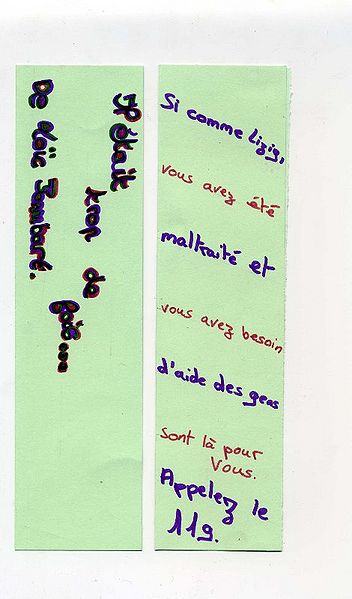 était trop de fois...
De
Si comme Lizig,
vous avez été
maltraité et
vous avez besoin
d'aide des gens
sont là pour
Vous.
Appelez le
119.